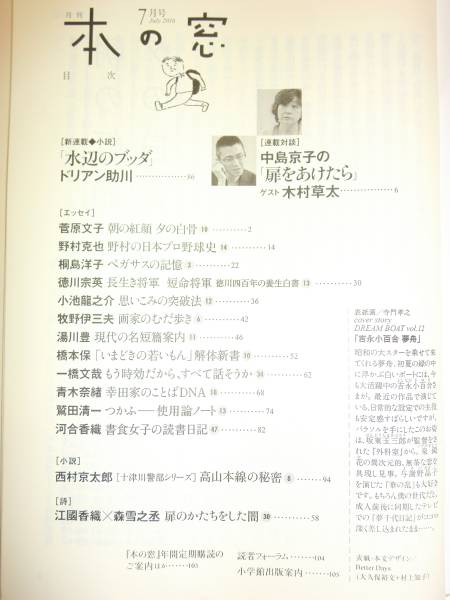 月刊
本の窓
7月号
July 2016
目 次
[新連載◆小説]
「水辺のブッダ」
ドリアン助川……………86
[連載対談]
中島京子の
「扉をあけたら」
ゲスト 木村草太……………6
[エッセイ]
菅原文子 朝の紅顔 夕の白骨 ………2
野村克也 野村の日本プロ野球史 14 …………14
桐島洋子 ペガサスの記憶 3 …………22
徳川宗英 長生き将軍 短命将軍 徳川四百年の養生白書 13 …………30
小池龍之介 思いこみの突破法 12 …………36
牧野伊三夫 画家のむだ歩き 6 …………42
湯川豊 現代の名短篇案内 11 …………46
橋本保 「いまどきの若いもん」解体新書 10 …………52
一橋文哉 もう時効だから、すべて話そうか …………62
青木奈緒 幸田家のことばDNA …………68
鷲田清一 つかふ——使用論ノート 13 …………74
河合香織 書食女子の読書日記 47 …………82
[小説]
西村京太郎 [十津川警部シリーズ] 高山本線の秘密 8 ……94
[詩]
江國香織×森雪之丞 扉のかたちをした闇 30 …………58
『本の窓』年間定期購読の
ご案内ほか……103
読者フォーラム……104
小学館出版案内……105
表紙画/寺門孝之
cover story
DREAM BOAT vol.12
「吉永小百合 夢舟」
昭和の大スターを乗せて来
てくれる夢舟、初夏の緑の中
に浮かぶ白いボートには、今
も大活躍中の吉永小百合さ
まが。最近の作品で演じて
いる、日常的な設定での主役
も安定感すばらしいですが、
パラソルを手にしたこのお姿
は、坂東玉三郎が監督をさ
れた『外科室』から。泉鏡
花の異次元的、無茶な恋を
具現し見事。与謝野晶子
を演じた『華の乱』も大好き
です。もちろん僕の世代だと、
成人前後に同期したテレビ
での『夢千代日記』がココロ
深く差し込まれたまま……。
表紙・本文デザイン/
Better Days
(大久保裕文+村上知子)